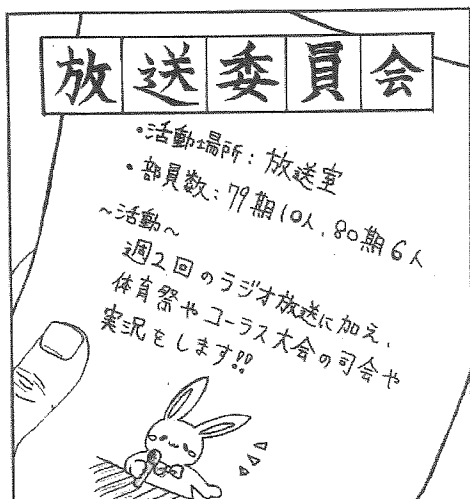 放送委員会
・活動場所：放送室
・部員数：79期10人、80期6人
～活動～
週2回のラジオ放送に加え、
体育祭やコーラス大会の司会や
実況をします!!